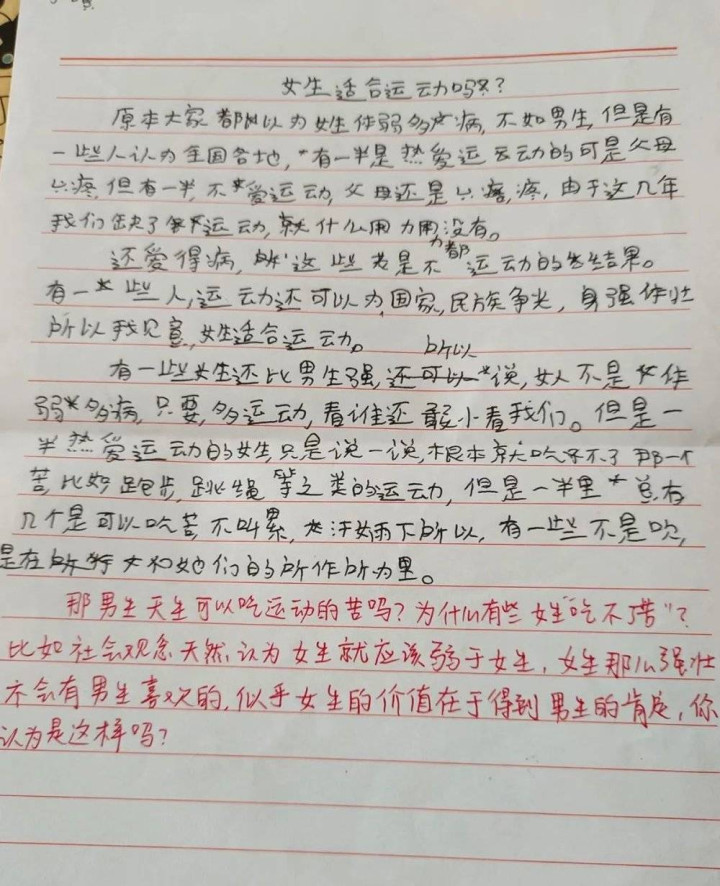 女生适合运动吗?
原本大家都以为女生体弱多病,不如男生,但是有
一些人认为全国各地,有一半是热爱运动的可是父母
心疼,但有一半,不爱运动,父母还是心疼,由于这几年
我们缺了运动,就什么用力用没有。
还爱得病,所以这些都是不运动的结果。
有一些人,运动还可以为国家,民族争光,身强体壮
所以我见意,女生适合运动。
有一些女生还比男生强,所以说,女人不是体
弱多病,只要,多运动,看谁还敢小看我们。但是一
半热爱运动的女生,只是说一说,根本就吃不了那一个
苦,比如跑步,跳绳等之类的运动,但是一半里总有
几个是可以吃苦不叫累,大汗如雨下所以,有一些不是吹,
是在和她们的所作所为里。
那男生天生可以吃运动的苦吗?为什么有些女生"吃不了苦"?
比如社会观念天然认为女生就应该弱于女生,女生那么强壮
不会有男生喜欢的,似乎女生的价值在于得到男生的肯定,你
认为是这样吗?